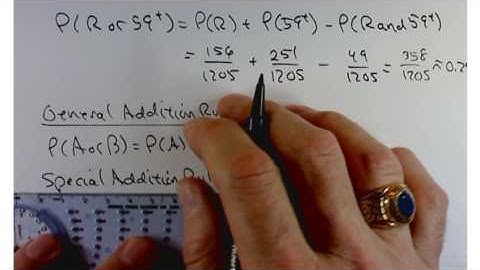 P(R or 59+) = P(R) + P(59+) - P(R and 59+)
= 156/1205 + 251/1205 - 49/1205 = 358/1205 ≈ 0.29
General Addition Ru
P(A or B) = P(A)
Special Addition Rul